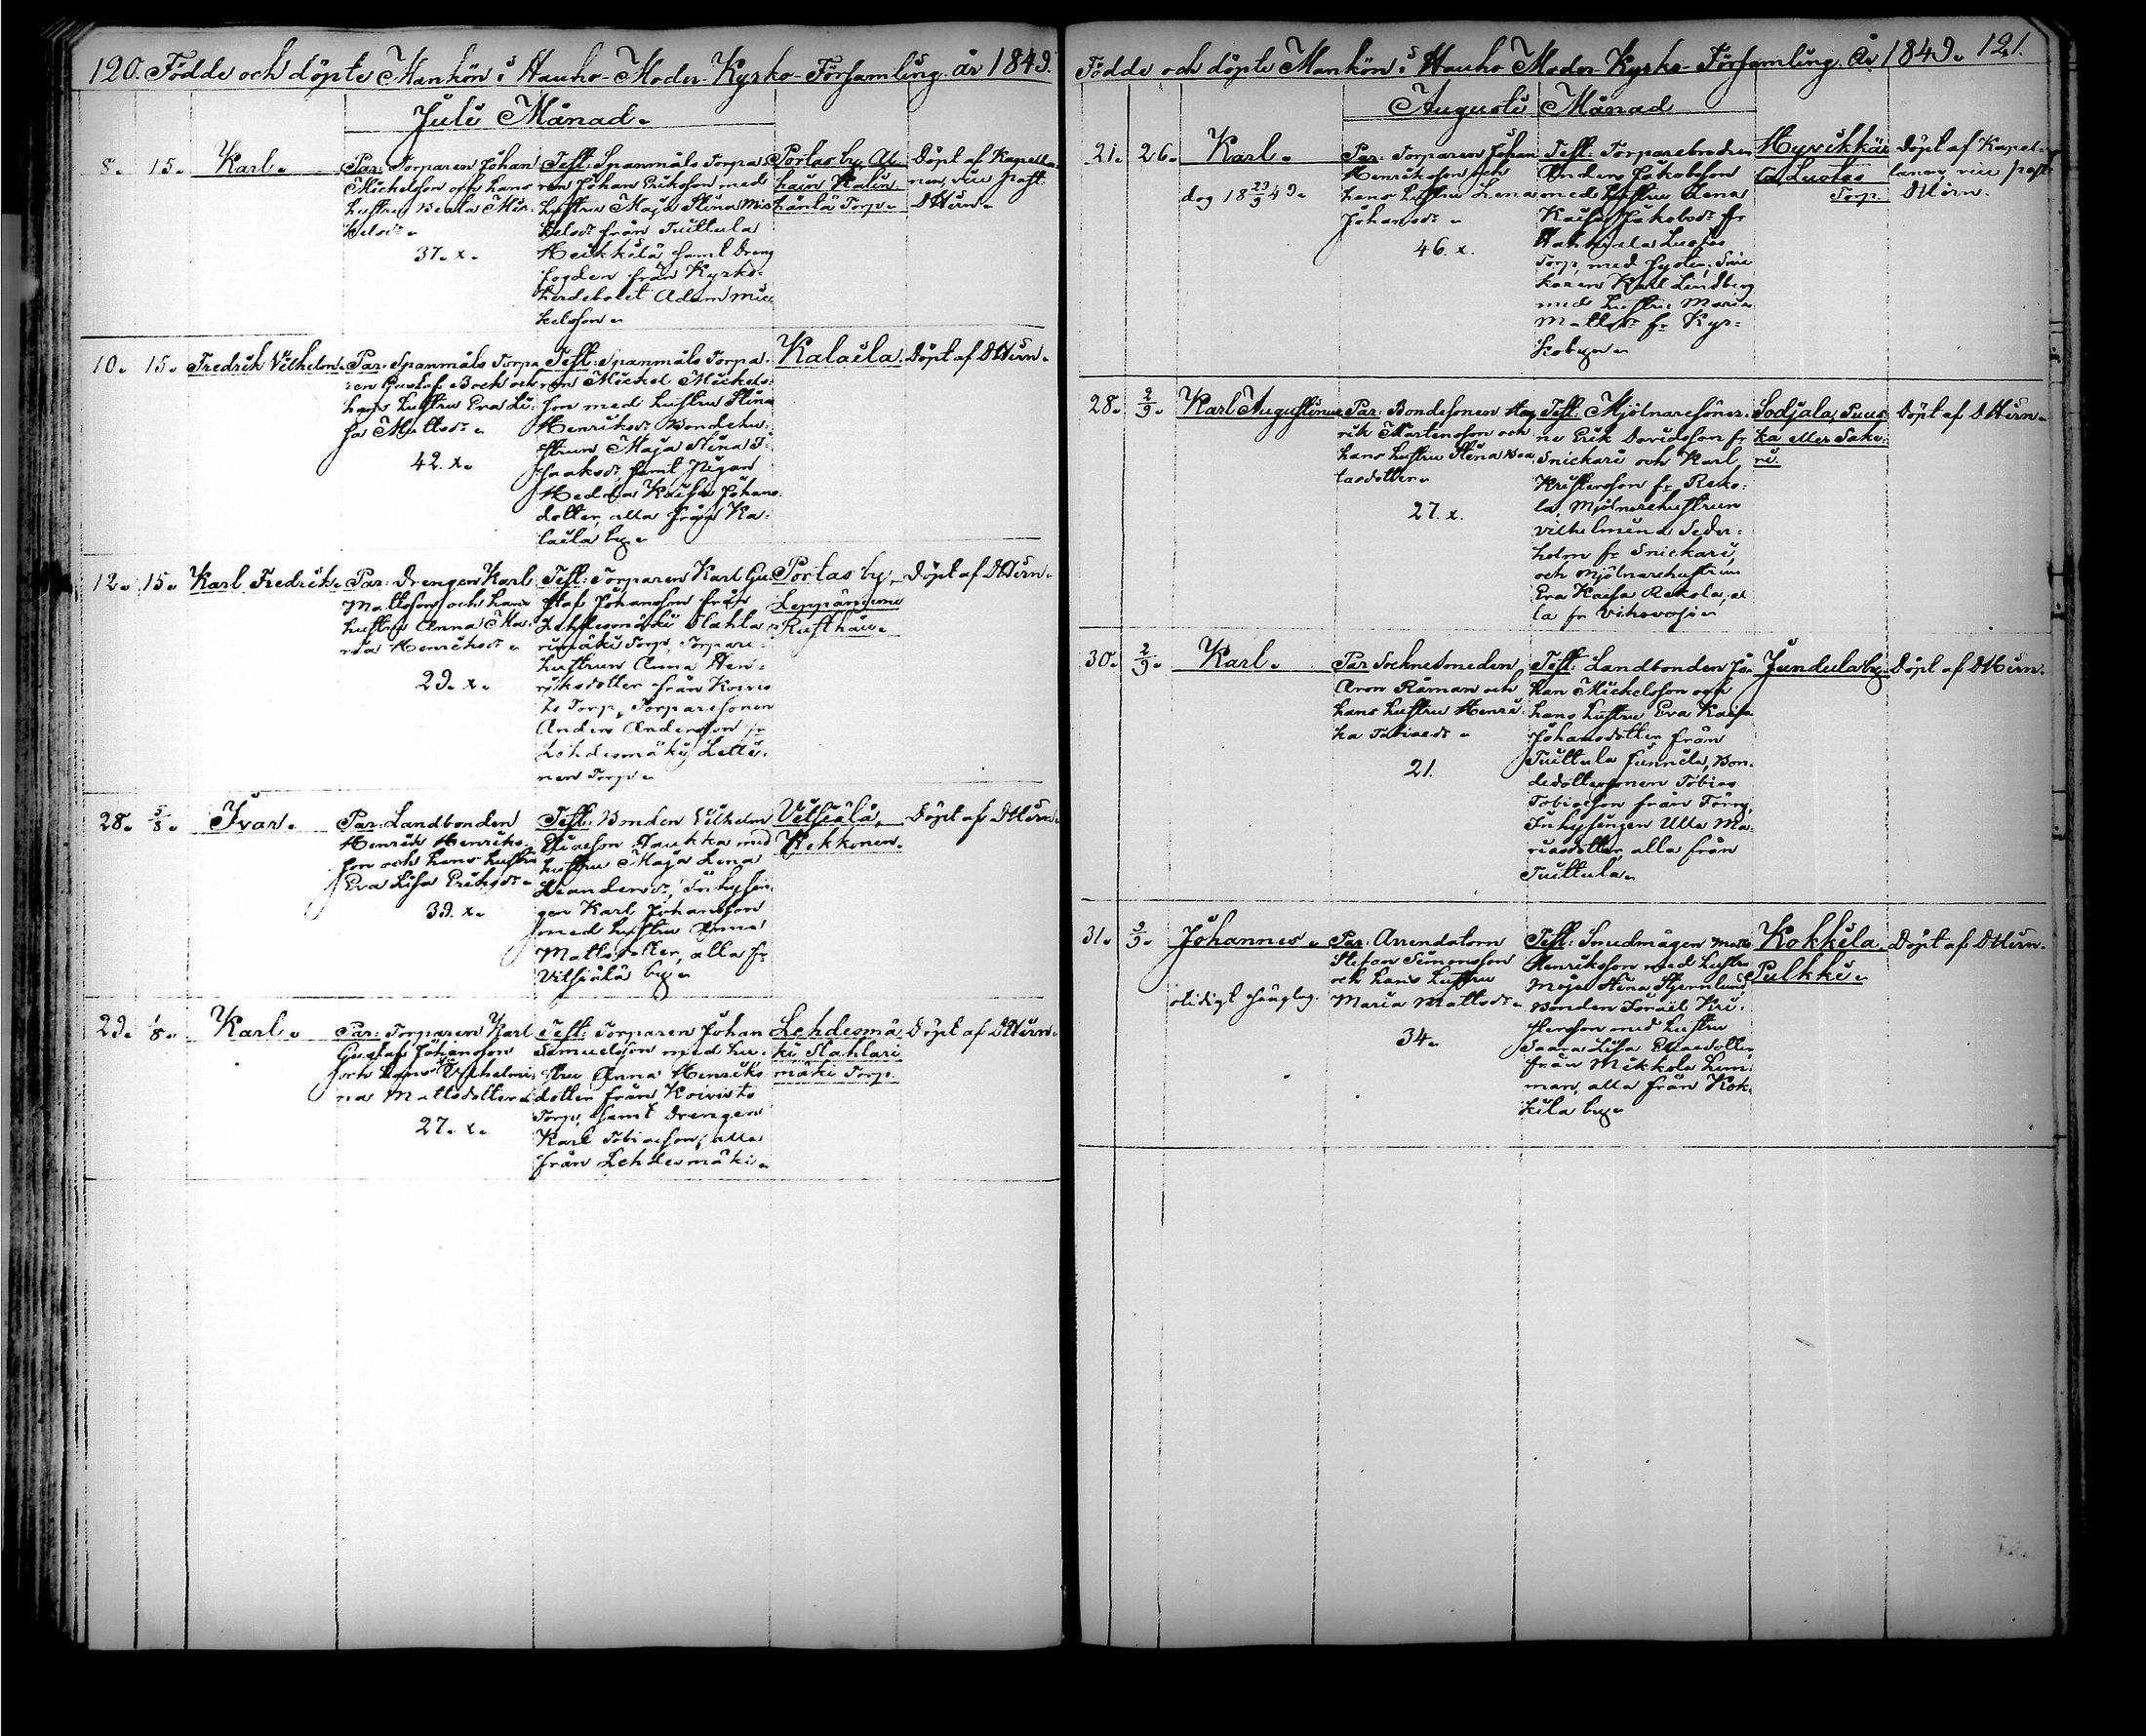 120. Födde och döpte Mankön i Hauho-Moder-Kyrko-Församling. år 1849.
Juli Månad.
8. 15. Karl.
Par: Torparen Johan
Mickelsson och hans
hustru Beata Mic-
kelsdr.
37. x.
Test: Spanmåls Torpa-
ren Johan Eriksson med
hustru Maja Stina Mic-
kelsdr från Tuittula
Heikkilä samt Dreng
fogden från Kyrko-
herdebolet Adam Mic-
kelsson.
Portas by,
Torp.
Döpt af Kapella-
nen, vice past.
DHirn.
10. 15. Fredrik Vilhelm.
Par: Spanmåls Torpa-
ren Gustaf Boch och
hans hustru Eva Li-
sa Mattsdr.
42. x.
Test: Spanmåls Torpa-
ren Mickel Mickels-
son med hustru Stina
Henriksdr Bondehu-
strun Maja Stina I-
saaksdr samt Pigan
Hedda Kaisa Johans-
dotter, alla från Ka-
laila by.
Kalaila.
Döpt af DHirn.
12. 15. Karl Fredrik.
Par: Drengen Karl
Mattsson och hans
hustru Anna Ma-
ria Henriksdr.
29. x.
Test: Torparen Karl Gu-
staf Johansson från
Lehdesmäki Slahla-
rimäki Torp, Torpare-
hustrun Anna Hen-
riksdotter från Koivis-
to Torp, Torparesonen
Anders Andersson fr
Lehdesmäki
nen Torp.
Portas by,
Rusthåll.
Döpt af DHirn.
28. 5/8. Ivar.
Par: Landbonden
Henrik Henriks-
son och hans hustru
Eva Lisa Eriksdr.
39. x.
Test: Bonden Vilhelm
Haukka med
hustru Maja Lena
Inhysin-
gen Karl Johansson
med hustru Anna
Mattsdotter, alla fr
Vitsiälä by.
Vitsiälä,
Hekkonen.
Döpt af DHirn.
29. 1/8. Karl.
Par: Torparen Karl
Gustaf Johansson
och hans Vilhelmi-
na Mattsdotter.
27. x.
Test: Torparen Johan
Samuelsson med hu-
stru Anna Henriks-
dotter från Koivisto
Torp, samt Drengen
Karl Tobiasson, alla
från Lehdesmäki.
Lehdesmä-
ki Slahlari-
mäki Torp.
Döpt af DHirn.
Födde och döpte Mankön i Hauho Moder-Kyrko-Församling. År 1849. 121.
Augusti Månad
21. 26. Karl.
dog 18 29/9 49.
Par: Torparen Johan
Henriksson och
hans hustru Lena
Johansdr.
46. x.
Test: Torparebrodren
Anders Jakobsson
med hustru Lena
Kaisa Jakobsdr fr
Torp, med
Karl Lindberg
med hustru Maria
Mattsdr fr Kyr-
kobyn.
Hyvikkä-
lä, Luotas
Torp.
Döpt af Kapel-
lanen, vice past.
DHirn.
28. 2/9. Karl Augustinus.
Par: Bondesonen Hen-
rik Mårtensson och
hans hustru Stina Bea-
tasdotter.
27. x.
Test: Mjölnaresöner-
ne Erik Davidsson fr
Snickari och Karl
Kristersson fr Reko-
la, Mjölnarehustrun
Vilhelmina Seder-
holm fr Snickari,
och Mjölnarehustrun
Eva Kaisa Rekola, al-
la fr Vihovosi.
Sodjala, Puus-
ka eller Sake-
ri.
Döpt af DHirn.
30. 2/9. Karl.
Par: Socknesmeden
Aron Råman och
hans hustru Henri-
ka Tobiaedr.
21.
Test: Landbonden Jo-
han Mickelsson och
hans hustru Eva Kaisa
Johansdotter från
Tuittula Junnila, Bon-
dedottersonen Tobias
Tobiasson från
Inhysingen Ulla Ma-
riasdotter, alla från
Tuittula.
Jundula by.
Döpt af DHirn.
31. 9/9. Johannes.
oltidigt
Par: Arrendatorn
Stefan Simonsson
och hans hustru
Maria Mattsdr.
34.
Test: Smedmågen Matts
Henriksson med hustru
Maja Stina Stjernlund,
Bonden Israël Kri-
stersson med hustru
Saara Lisa
från Mikkola
man, alla från Kok-
kila by.
Kokkila
Pulkki.
Döpt af DHirn.